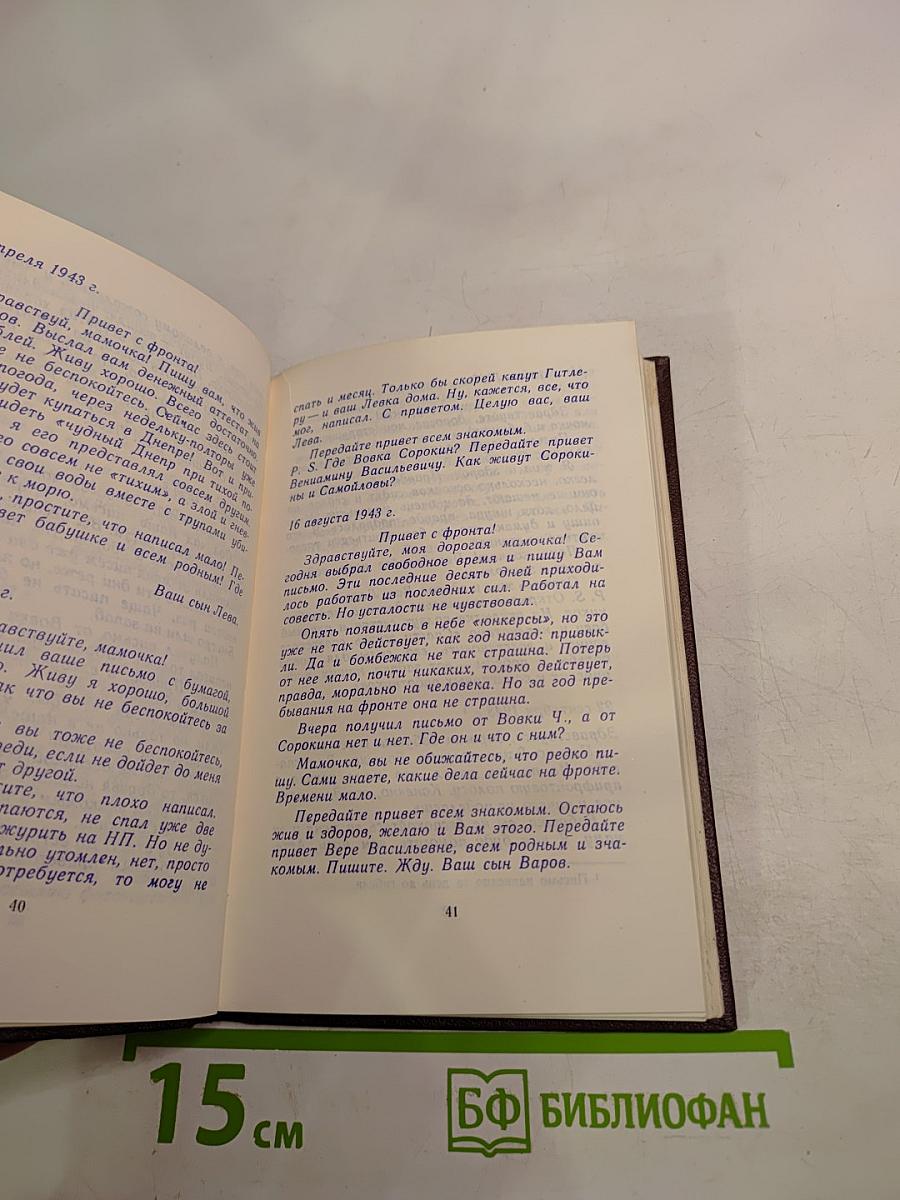 преля 1943 г.
Привет с фронта!
равствуй, мамочка! Пишу вам, что жив
ров. Выслал вам денежный аттестат на
блей. Живу хорошо. Всего достаточно.
е не беспокойтесь. Сейчас здесь стоит
погода, через недельку-полторы уже
удет купаться в Днепре! Вот и при-
идеть «чудный Днепр при тихой по-
я его представлял совсем другим.
совсем не «тихим», а злой и гнев-
свои воды вместе с трупами уби-
к морю.
, простите, что написал мало! Пе-
вет бабушке и всем родным! Где
Ваш сын Лева.
г.
авствуйте, мамочка!
чил ваше письмо с бумагой,
о. Живу я хорошо, большой
ак что вы не беспокойтесь за
вы тоже не беспокойтесь,
реди, если не дойдет до меня
т другой.
тите, что плохо написал.
паются, не спал уже две
журить на НП. Но не ду-
льно утомлен, нет, просто
отребуется, то могу не
40
спать и месяц. Только бы скорей капут Гитле-
ру — и ваш Левка дома. Ну, кажется, все, что
мог, написал. С приветом. Целую вас, ваш
Лева.
Передайте привет всем знакомым.
P. S. Где Вовка Сорокин? Передайте привет
Вениамину Васильевичу. Как живут Сороки-
ны и Самойловы?
16 августа 1943 г.
Привет с фронта!
Здравствуйте, моя дорогая мамочка! Се-
годня выбрал свободное время и пишу Вам
письмо. Эти последние десять дней приходи-
лось работать из последних сил. Работал на
совесть. Но усталости не чувствовал.
Опять появились в небе «юнкерсы», но это
уже не так действует, как год назад: привык-
ли. Да и бомбежка не так страшна. Потерь
от нее мало, почти никаких, только действует,
правда, морально на человека. Но за год пре-
бывания на фронте она не страшна.
Вчера получил письмо от Вовки Ч., а от
Сорокина нет и нет. Где он и что с ним?
Мамочка, вы не обижайтесь, что редко пи-
шу. Сами знаете, какие дела сейчас на фронте.
Времени мало.
Передайте привет всем знакомым. Остаюсь
жив и здоров, желаю и Вам этого. Передайте
привет Вере Васильевне, всем родным и зна-
комым. Пишите. Жду. Ваш сын Варов.
41
15 см
БФ БИБЛИОФАН